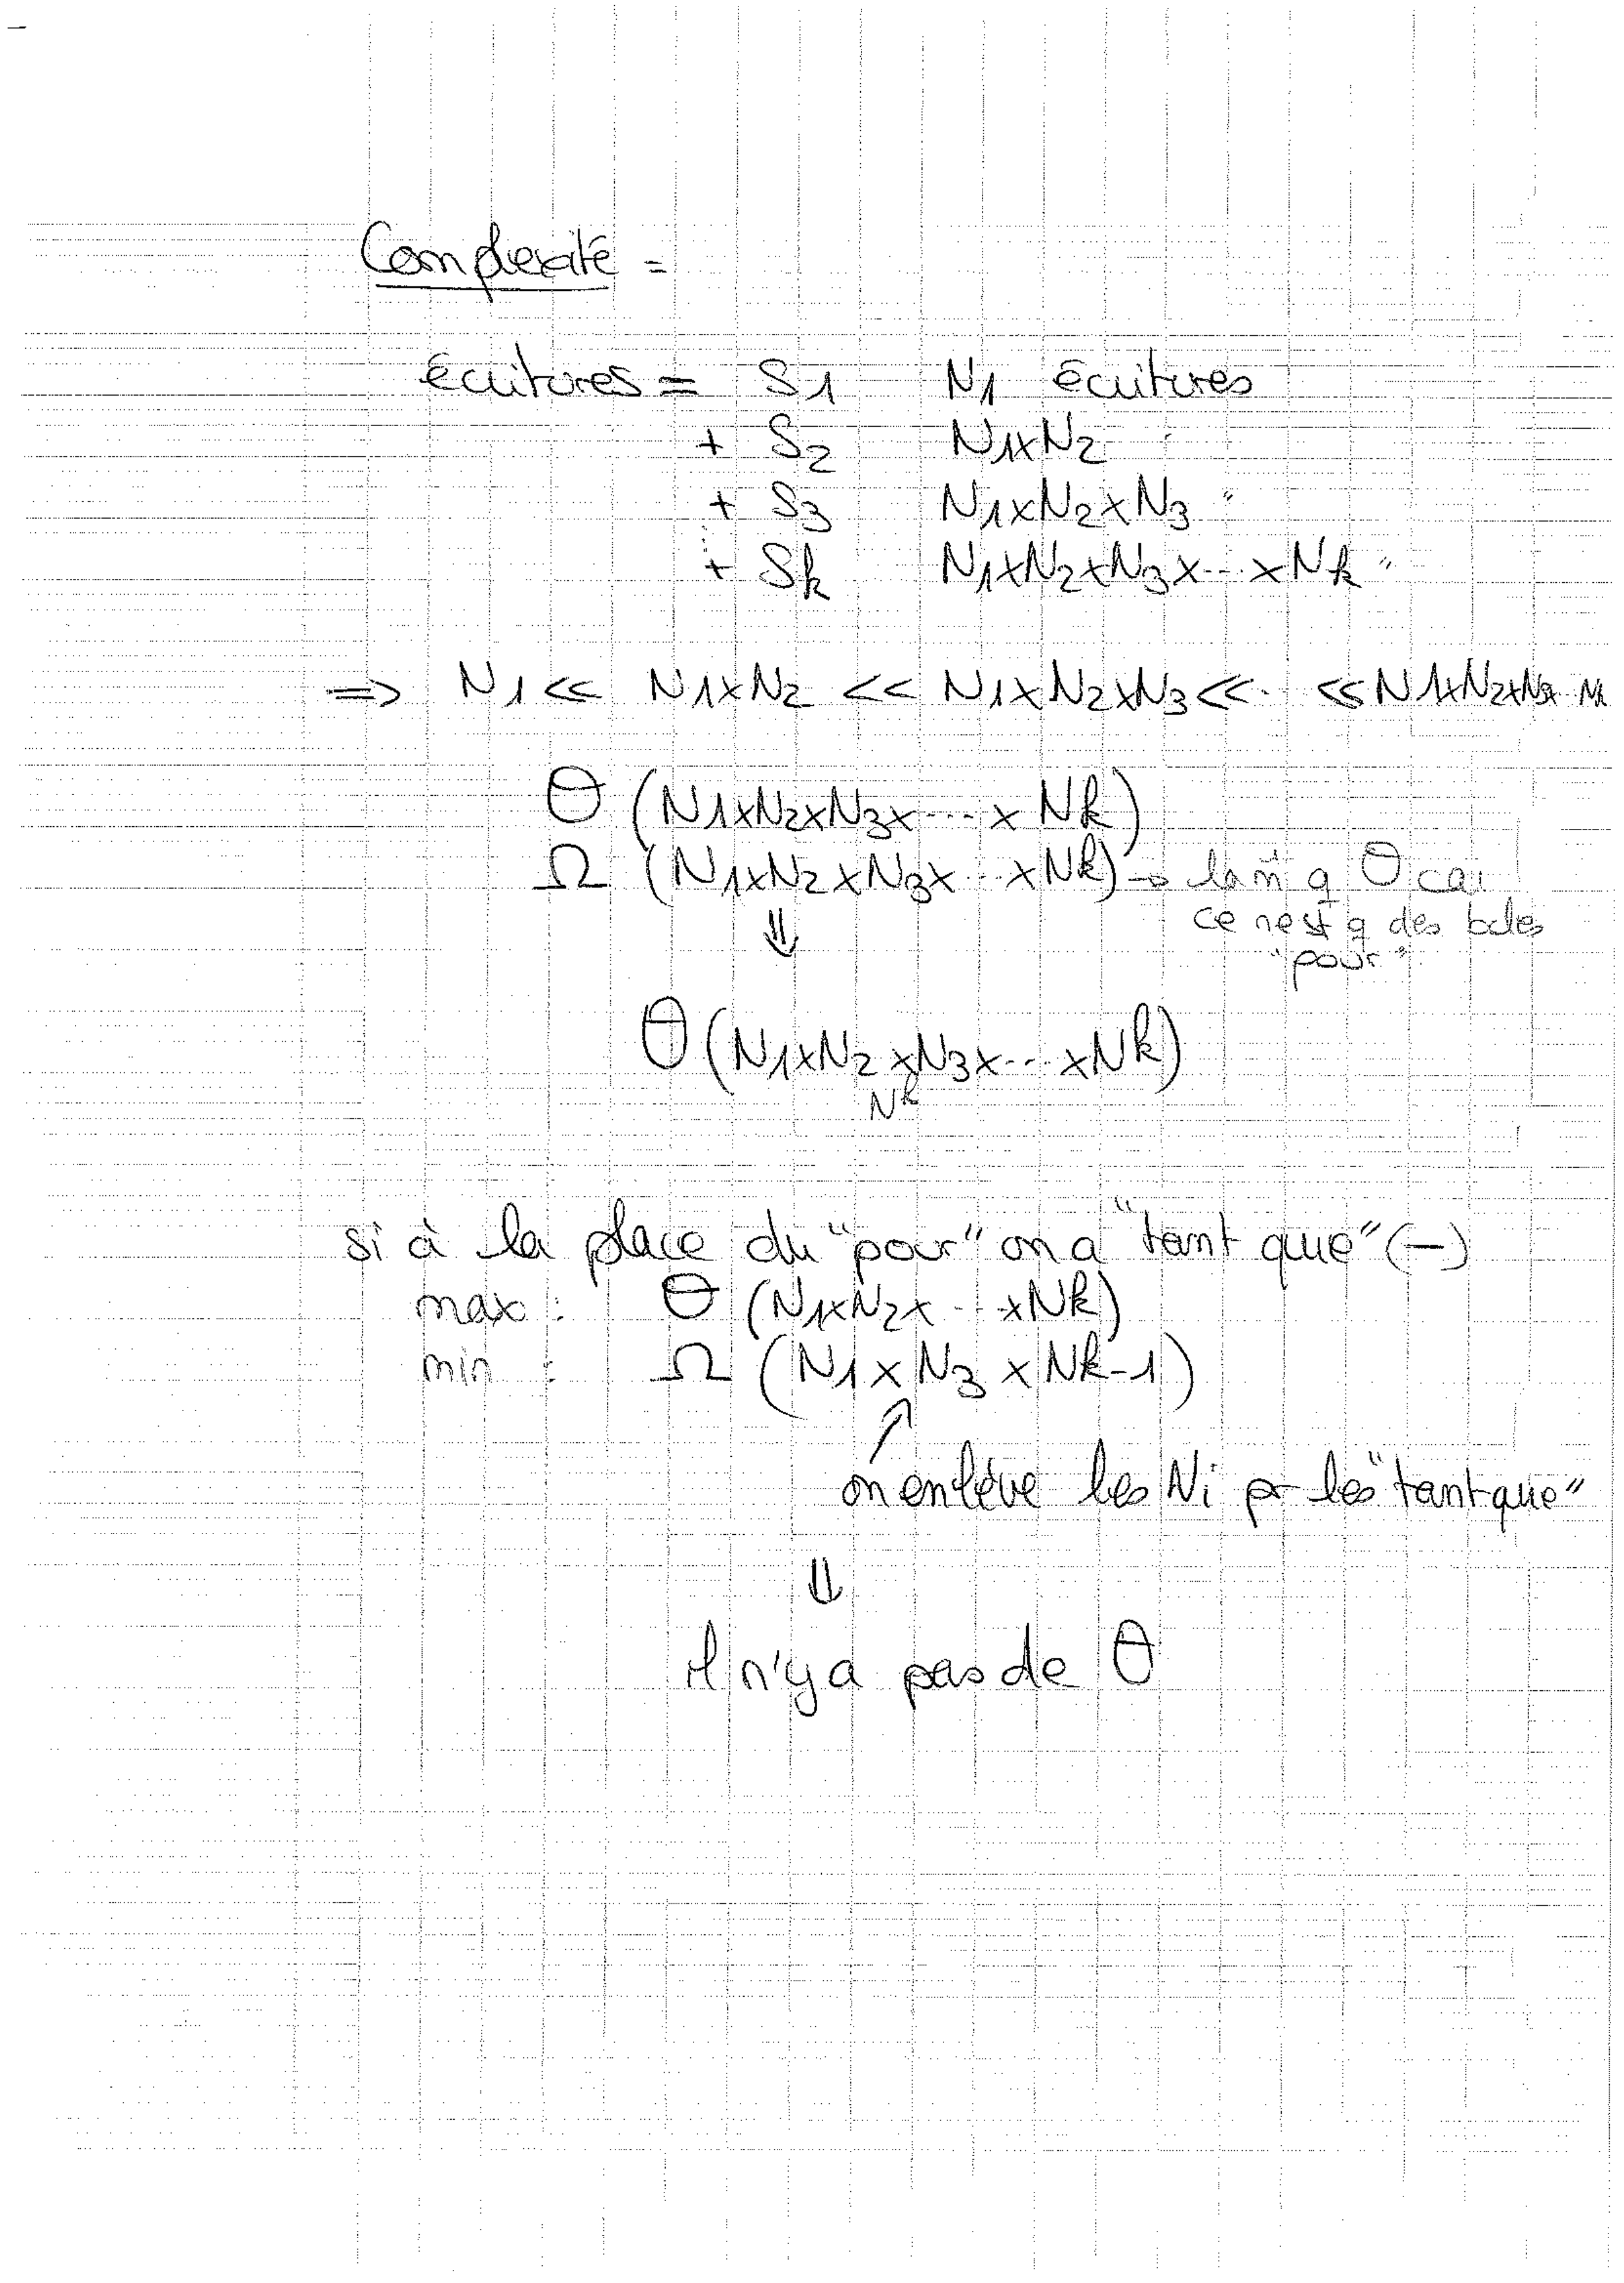 Complexité =
écritures = S1 N1 écritures
+ S2 N1xN2 "
+ S3 N1xN2xN3 "
+ Sk N1xN2xN3x...xNk "
=> N1 << N1xN2 << N1xN2xN3 << .. << N1xN2xN3x
Θ (N1xN2xN3x...x Nk)
Ω (N1xN2xN3x...xNk) → la m̂ q Θ car
ce n'est q des bcles
"pour"
⇓
Θ (N1xN2xN3x...xNk)
N^k
si à la place du "pour" on a "tant que" (—)
max : Θ (N1xN2x...xNk)
min : Ω (N1 x N3 x Nk-1)
↗
on enlève les Ni pr les "tant que"
⇓
il n'y a pas de Θ